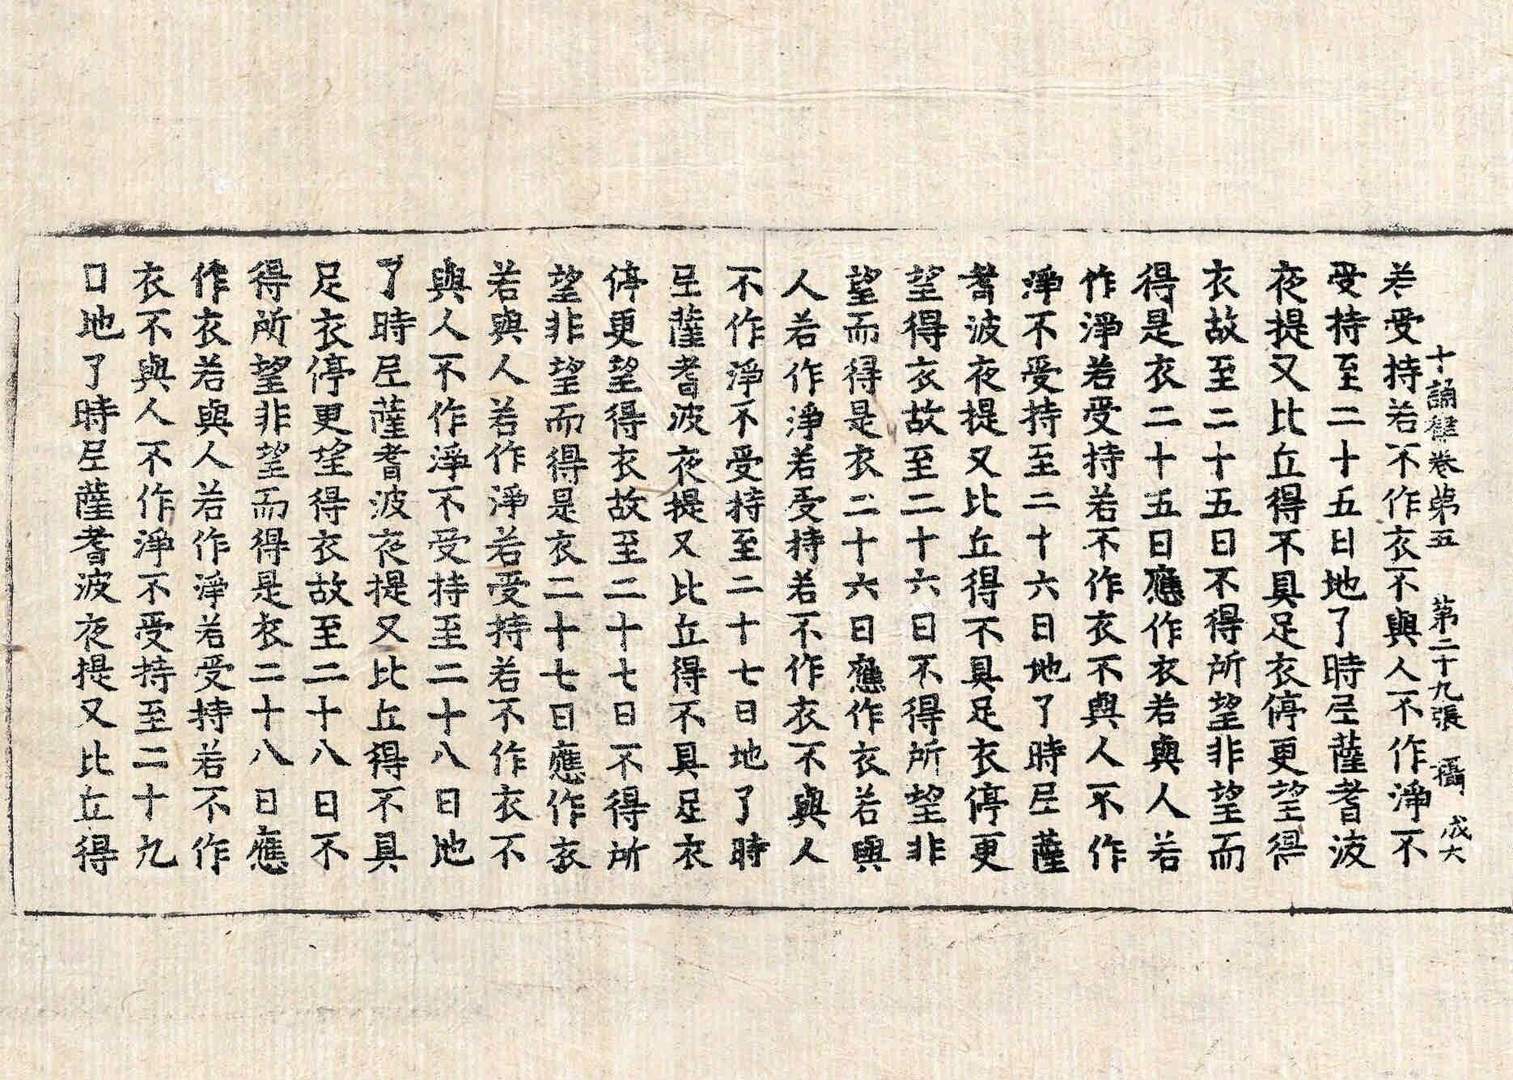 十誦律卷第五 第二十九張 攝 大
若受持若不作衣不與人不作淨不
受持至二十五日地了時尼薩耆波
夜提又比丘得不具足衣停更望得
衣故至二十五日不得所望非望而
得是衣二十五日應作衣若與人若
作淨若受持若不作衣不與人不作
淨不受持至二十六日地了時尼薩
耆波夜提又比丘得不具足衣停更
望得衣故至二十六日不得所望非
望而得是衣二十六日應作衣若與
人若作淨若受持若不作衣不與人
不作淨不受持至二十七日地了時
尼薩耆波夜提又比丘得不具足衣
停更望得衣故至二十七日不得所
望非望而得是衣二十七日應作衣
若與人若作淨若受持若不作衣不
與人不作淨不受持至二十八日地
了時尼薩耆波夜提又比丘得不具
足衣停更望得衣故至二十八日不
得所望非望而得是衣二十八日應
作衣若與人若作淨若受持若不作
衣不與人不作淨不受持至二十九
日地了時尼薩耆波夜提又比丘得